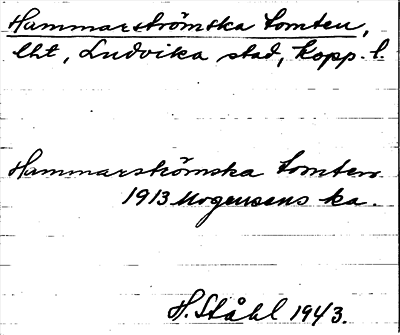 Hammarströmska tomten,
lht, Ludvika stad, Kopp. l.
Hammarströmska tomten
1913 Mogensens ka.
H. Ståhl 1943.